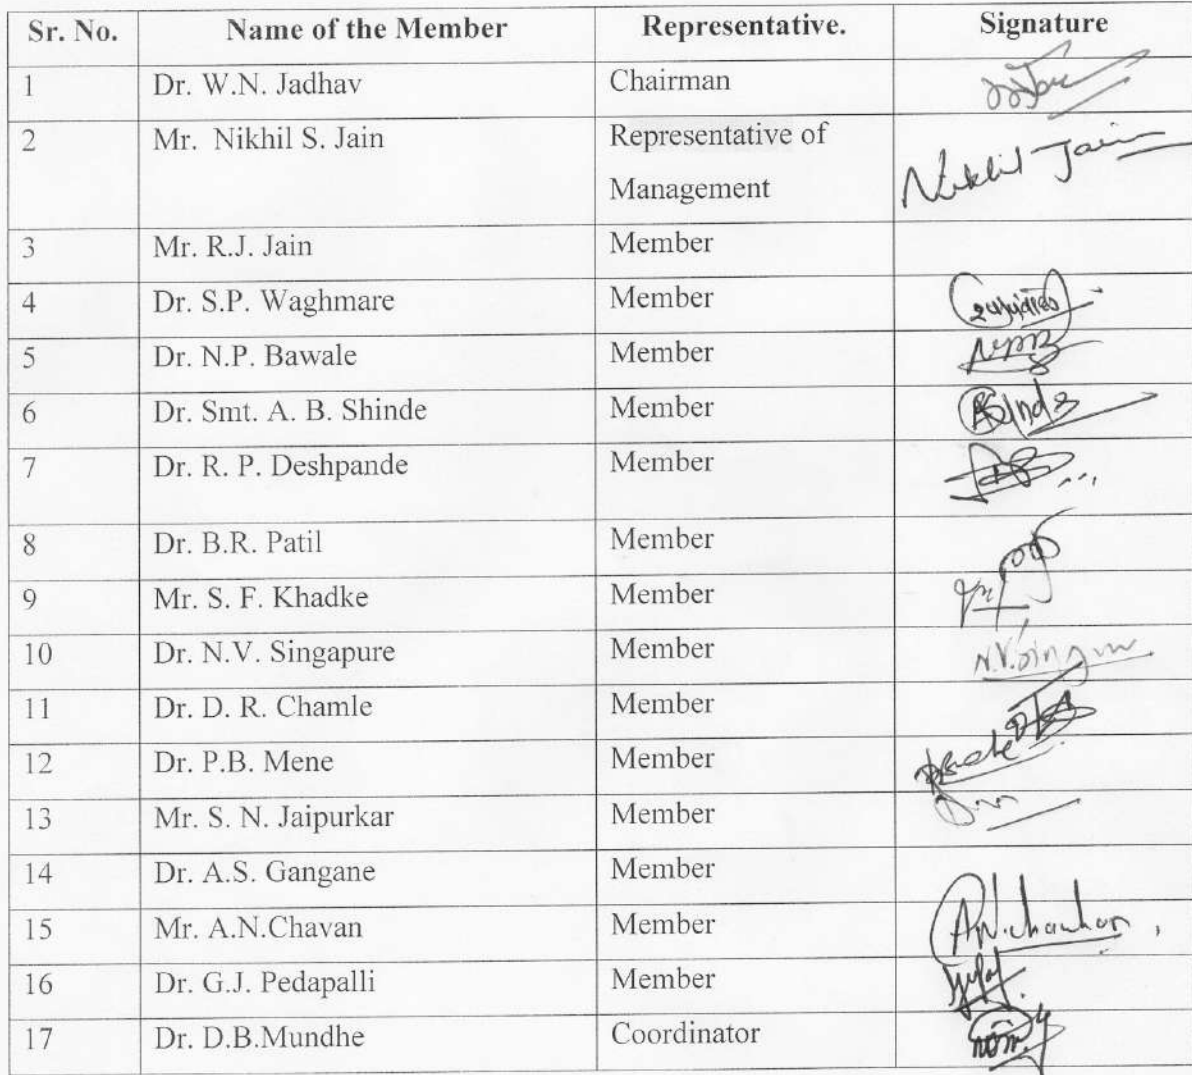 Sr. No. Name of the Member Representative. Signature
1 Dr. W.N. Jadhav Chairman
2 Mr. Nikhil S. Jain Representative of
Management Nikhil Jain
3 Mr. R.J. Jain Member
4 Dr. S.P. Waghmare Member
5 Dr. N.P. Bawale Member
6 Dr. Smt. A. B. Shinde Member
7 Dr. R. P. Deshpande Member
8 Dr. B.R. Patil Member
9 Mr. S. F. Khadke Member
10 Dr. N.V. Singapure Member
11 Dr. D. R. Chamle Member
12 Dr. P.B. Mene Member
13 Mr. S. N. Jaipurkar Member
14 Dr. A.S. Gangane Member
15 Mr. A.N.Chavan Member A.N.chauhan
16 Dr. G.J. Pedapalli Member
17 Dr. D.B.Mundhe Coordinator